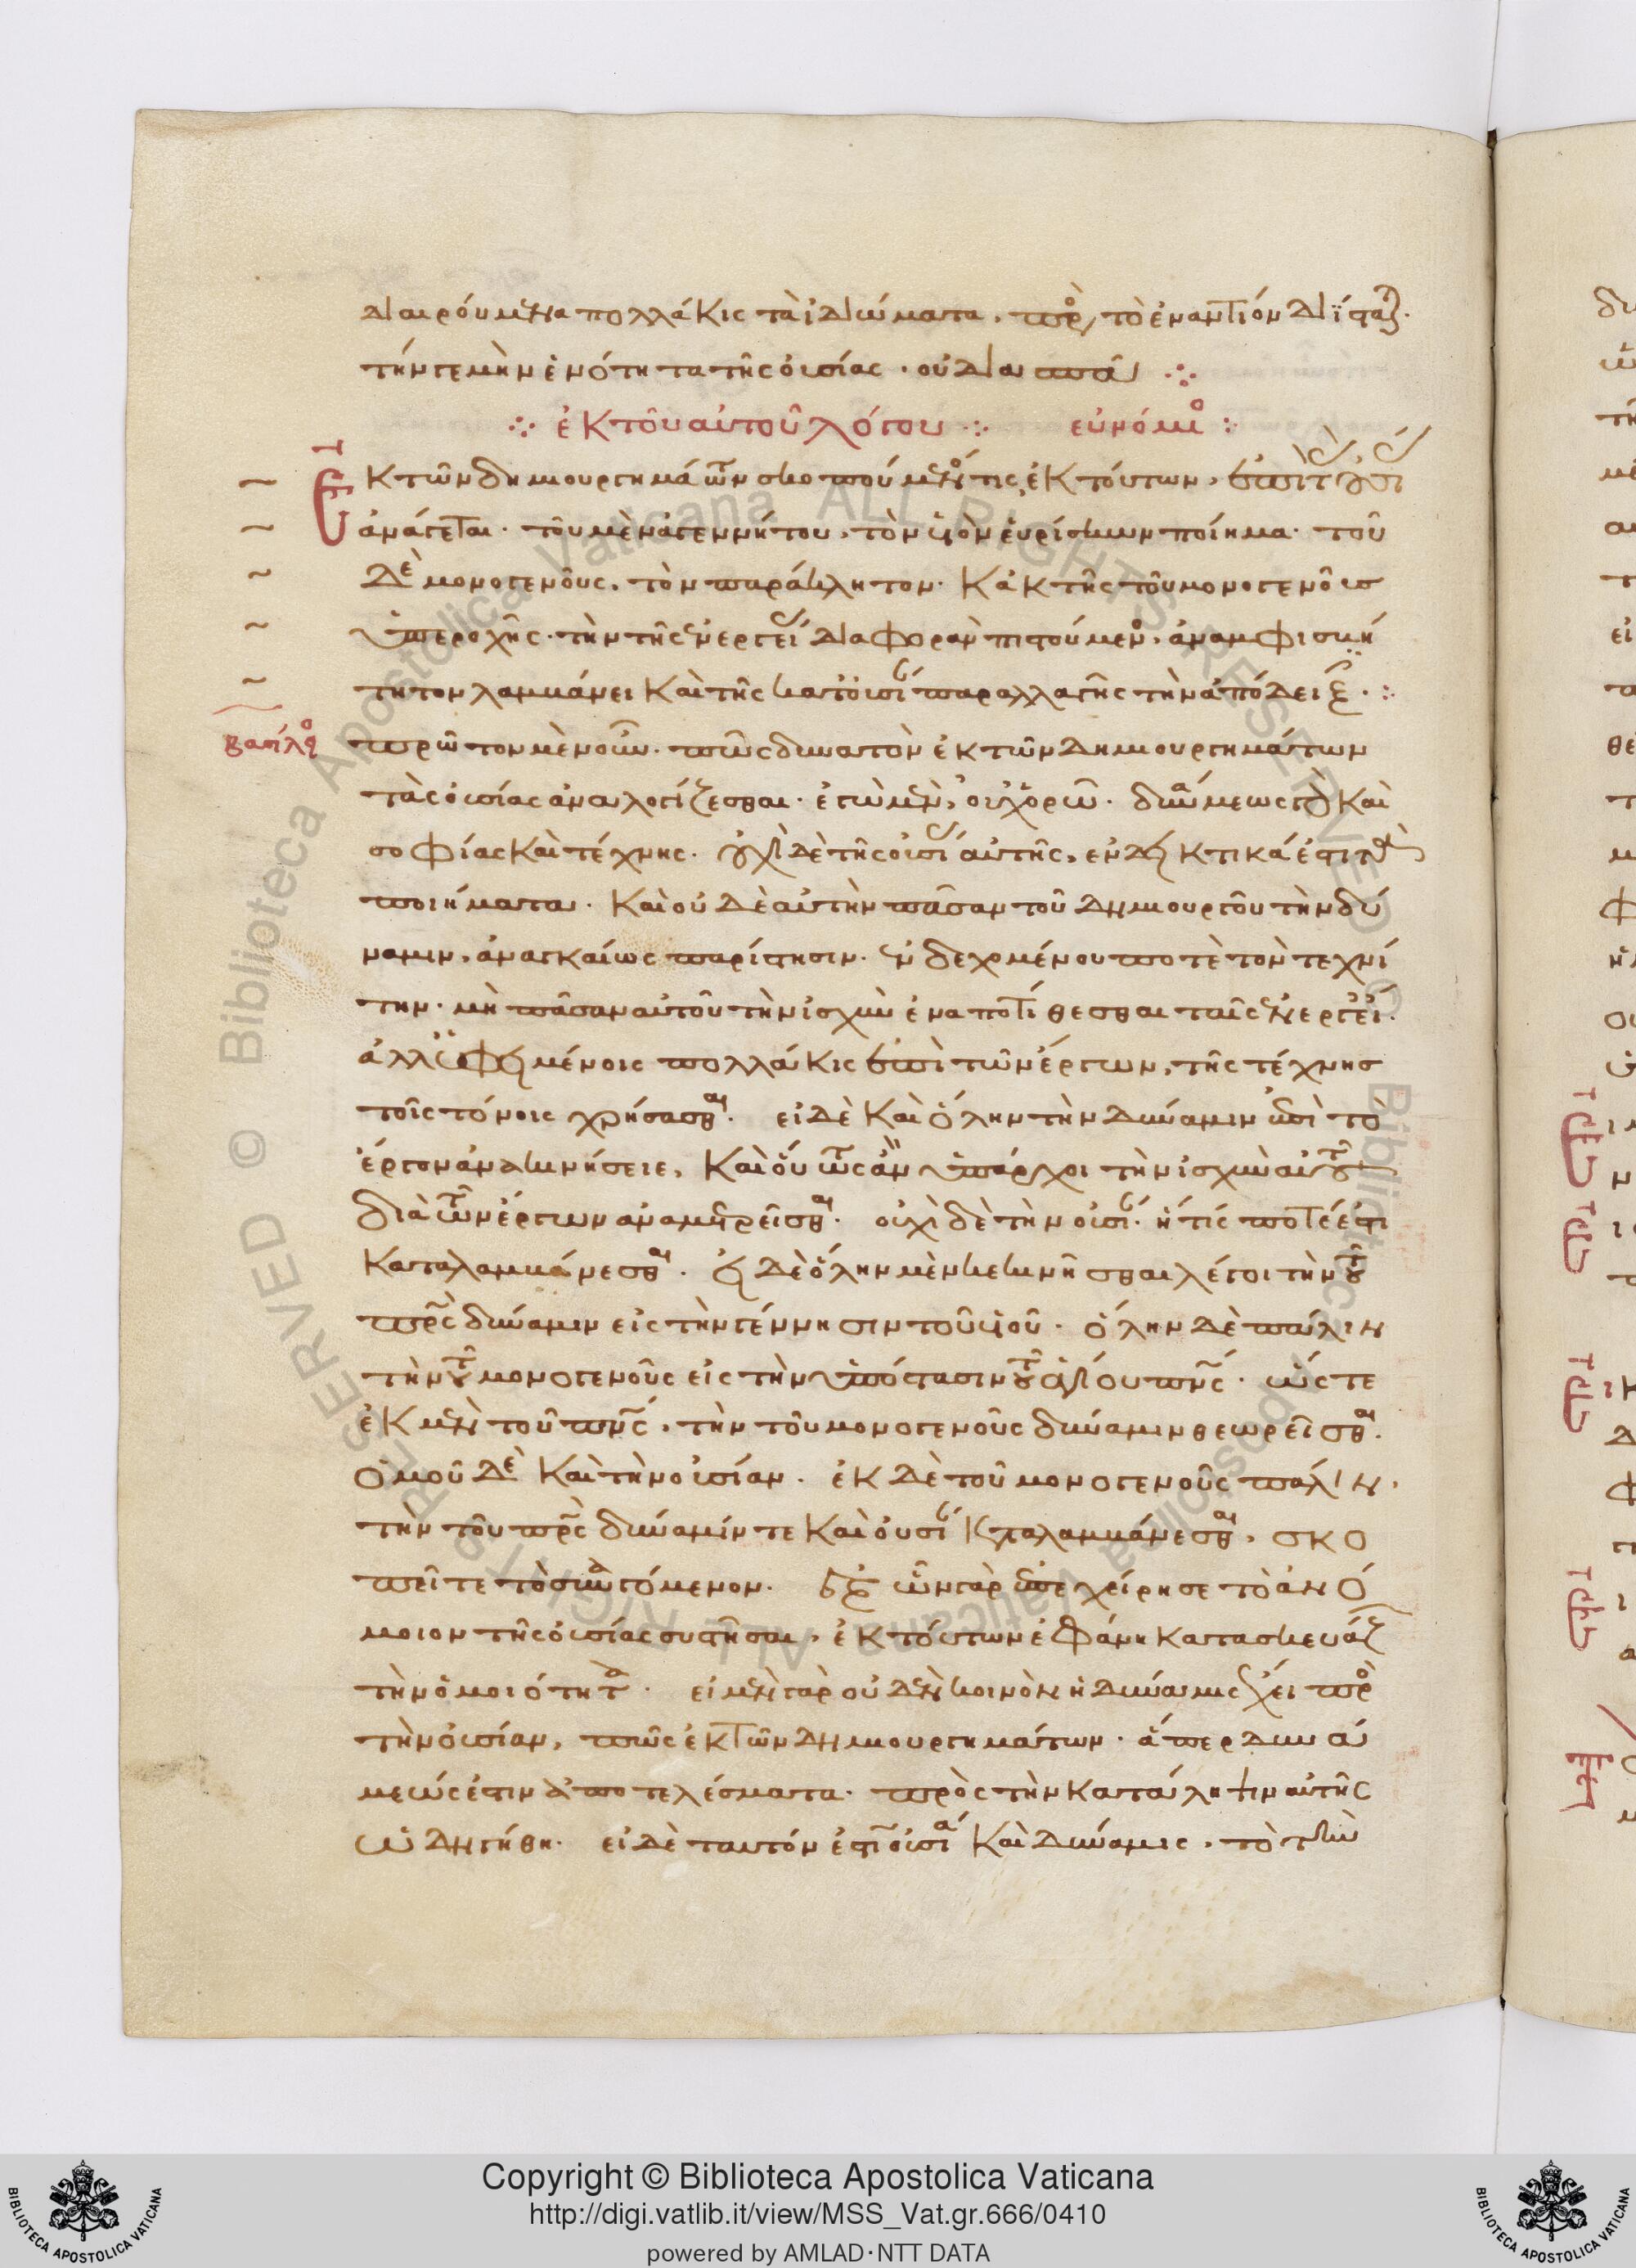 διαιρούμενα πολλάκις τὰ ἰδιώματα, πρὸς τὸ ἐναντίον διΐσταται.
τὴν γε μὴν ἑνότητα τῆς οὐσίας, οὐ διασπᾶ
ἐκ τοῦ αὐτοῦ λόγου εὐνόμιος
Ἐκ τῶν δημιουργημάτων σκοπούμενός τις, ἐκ τούτων, ἐπὶ τὰς οὐσίας
ἀνάγεται. τοῦ μὲν ἀγεννήτου, τὸν υἱὸν εὑρίσκων ποίημα. τοῦ
δὲ μονογενοῦς, τὸν παράκλητον. κἀκ τῆς τοῦ μονογενοῦς
ὑπεροχῆς. τὴν τῆς ἐνεργείας διαφορὰν πιστούμενος, ἀναμφισβή
τητον λαμβάνει καὶ τῆς κατ' οὐσίαν παραλλαγῆς τὴν ἀπόδειξιν.
βασίλειος
πρῶτον μὲν οὖν. πῶς δυνατὸν ἐκ τῶν δημιουργημάτων
τὰς οὐσίας ἀναλογίζεσθαι. ἐγὼ μὲν, οὐχ ὁρῶ. δυνάμεως γὰρ καὶ
σοφίας καὶ τέχνης. οὐχὶ δὲ τῆς οὐσίας αὐτῆς, ἐνδεικτικά ἐστι τὰ
ποιήματα. καὶ οὐδὲ αὐτὴν πᾶσαν τοῦ δημιουργοῦ τὴν δύ
ναμιν, ἀναγκαίως παρίστησιν. ἐνδεχομένου ποτὲ τὸν τεχνί
την. μὴ πᾶσαν αὐτοῦ τὴν ἰσχὺν ἐναποτίθεσθαι ταῖς ἐνεργείαις.
ἀλλ' ὑφειμένοις πολλάκις ἐπὶ τῶν ἔργων, τῆς τέχνης
τοῖς τόνοις χρήσασθαι. εἰ δὲ καὶ ὅλην τὴν δύναμιν ἐπὶ τὸ
ἔργον ἀνακινήσειε, καὶ οὕτως ἂν ὑπάρχοι τὴν ἰσχὺν αὐτοῦ
διὰ τῶν ἔργων ἀναμετρεῖσθαι. οὐχὶ δὲ τὴν οὐσίαν. ἥτίς ποτέ ἐστι
καταλαμβάνεσθαι. εἰ δὲ ὅλην μὲν κεκινῆσθαι λέγοι τὴν τοῦ
πρς δύναμιν εἰς τὴν γέννησιν τοῦ υἱοῦ. ὅλην δὲ πάλιν
τὴν τοῦ μονογενοῦς εἰς τὴν ὑπόστασιν τοῦ ἁγίου πνς. ὥστε
ἐκ μὲν τοῦ πνς, τὴν τοῦ μονογενοῦς δύναμιν θεωρεῖσθαι.
ὁμοῦ δὲ καὶ τὴν οὐσίαν. ἐκ δὲ τοῦ μονογενοῦς πάλιν,
τὴν τοῦ πρς δύναμίν τε καὶ οὐσίαν καταλαμβάνεσθαι, σκο
πεῖτε τὸ συναγόμενον. ἐξ ὧν γὰρ ἐπεχείρησε τὸ ἀνό
μοιον τῆς οὐσίας συστῆσαι, ἐκ τούτων ἐφάνη κατασκευάζων
τὴν ὁμοιότητα. εἰ μὲν γὰρ οὐδὲν κοινὸν ἡ δύναμις ἔχει πρὸς
τὴν οὐσίαν, πῶς ἐκ τῶν δημιουργημάτων. ἅπερ δυνά
μεώς ἐστιν ἀποτελέσματα. πρὸς τὴν κατάληψιν αὐτῆς
ὡδηγήθη. εἰ δὲ ταυτόν ἐστιν οὐσία καὶ δύναμις, τὸ τὴν
Copyright © Biblioteca Apostolica Vaticana
http://digi.vatlib.it/view/MSS_Vat.gr.666/0410
powered by AMLAD·NTT DATA